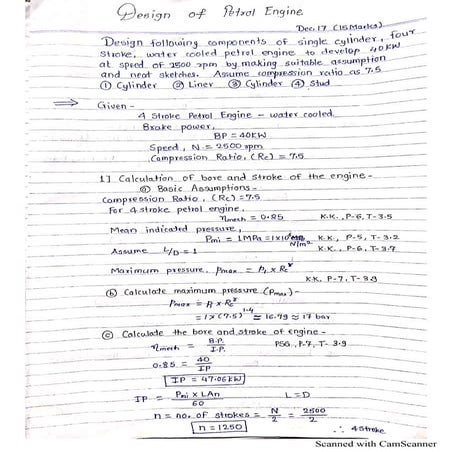 Design of Petrol Engine
Dec.17 (15Marks)
Design following components of single cylinder, four
stroke, water cooled petrol engine to develop 40KW
at speed of 2500 rpm by making suitable assumption
and neat sketches. Assume compression ratio as 7.5
① Cylinder ② Liner ③ Cylinder ④ Stud
⇒ Given -
4 Stroke Petrol Engine - water cooled.
Brake power,
BP = 40KW
Speed, N = 2500 rpm
Compression Ratio, (Rc) = 7.5
1] Calculation of bore and stroke of the engine -
ⓐ Basic Assumptions -
Compression Ratio, (Rc) = 7.5
For 4 stroke petrol engine,
ηmech = 0.85 K.K., P-6, T-3.5
Mean indicated pressure,
Pmi = 1MPa = 1×10⁶ N/m² K.K., P-5, T-3.2
Assume L/D = 1 K.K., P-6, T-3.7
Maximum pressure, Pmax = P₁ × Rc^γ
K.K, P-7, T-3.9
ⓑ Calculate maximum pressure (Pmax) -
Pmax = P₁ × Rc^γ
= 1 × (7.5)^1.4 ≈ 16.79 ≈ 17 bar
ⓒ Calculate the bore and stroke of engine -
ηmech = B.P. / I.P. PSG, P-7, T- 3.9
0.85 = 40 / IP
IP = 47.06KW
IP = Pmi × LAn / 60 L = D
n = no. of strokes = N/2 = 2500/2
n = 1250 ∴ 4 Stroke
Scanned with CamScanner